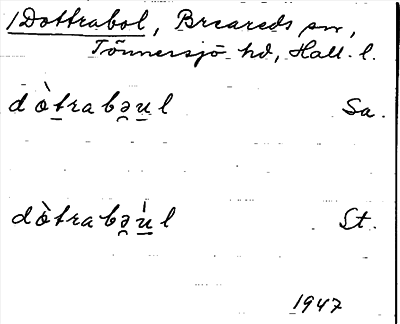 /Dottrabol, Breareds sn,
Tönnersjö hd, Hall. l.
dò̱trabə̯u̱l Sa.
dò̱trabə̯ú̱l St.
1947